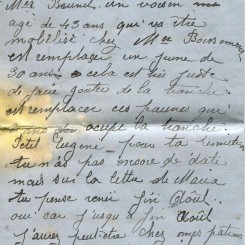 Mer Bounil, un voisin
agé de 43 ans qu'va être
mobilisé chez Mer
est remplacé un jeune de
30 ans cela est très juste
de faire gouter de la tranche
et remplacer ces jeunes qui
ocupt la tranche
Petit Eugene pour ta
tu n'as pas encore de date
mais sur la lettre de Maria
tu pense venir fin Août
oui car jusqu'a fin Août
j'aurez peut-etre chez mes patrons